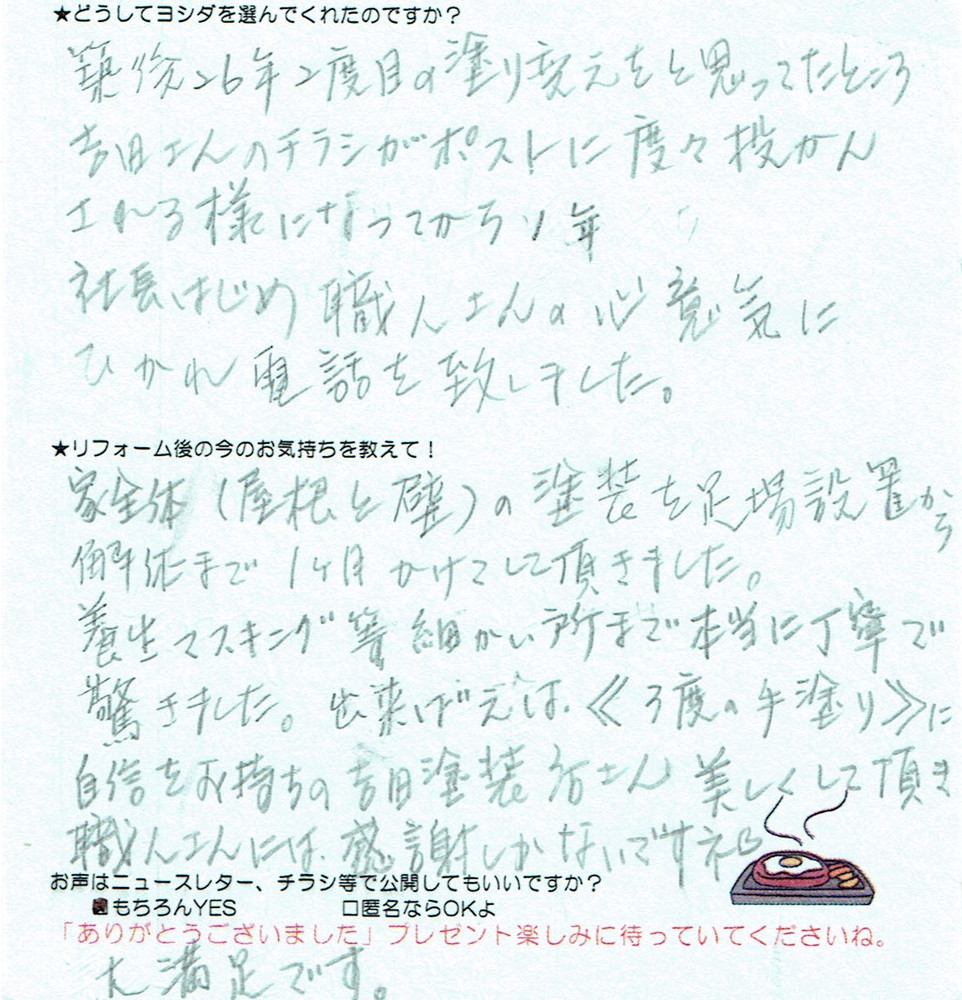 ★どうしてヨシダを選んでくれたのですか？
築後26年2度目の塗り変えをと思ってたところ
吉田さんのチラシがポストに度々投かん
される様になってから 年
社長はじめ職人さんの心意気に
ひかれ電話を致しました。
★リフォーム後の今のお気持ちを教えて！
家全体(屋根と壁)の塗装を足場設置から
解体まで1ヶ月かけてして頂きました。
養生マスキング等細かい所まで本当に丁寧で
驚きました。出来ばえは、《3度の手塗り》に
自信をお持ちの吉田塗装 さん美しくして頂き
職人さんには、感謝しかないですネ
お声はニュースレター、チラシ等で公開してもいいですか？
■もちろんYES □匿名ならOKよ
「ありがとうございました」プレゼント楽しみに待っていてくださいね。
大満足です。